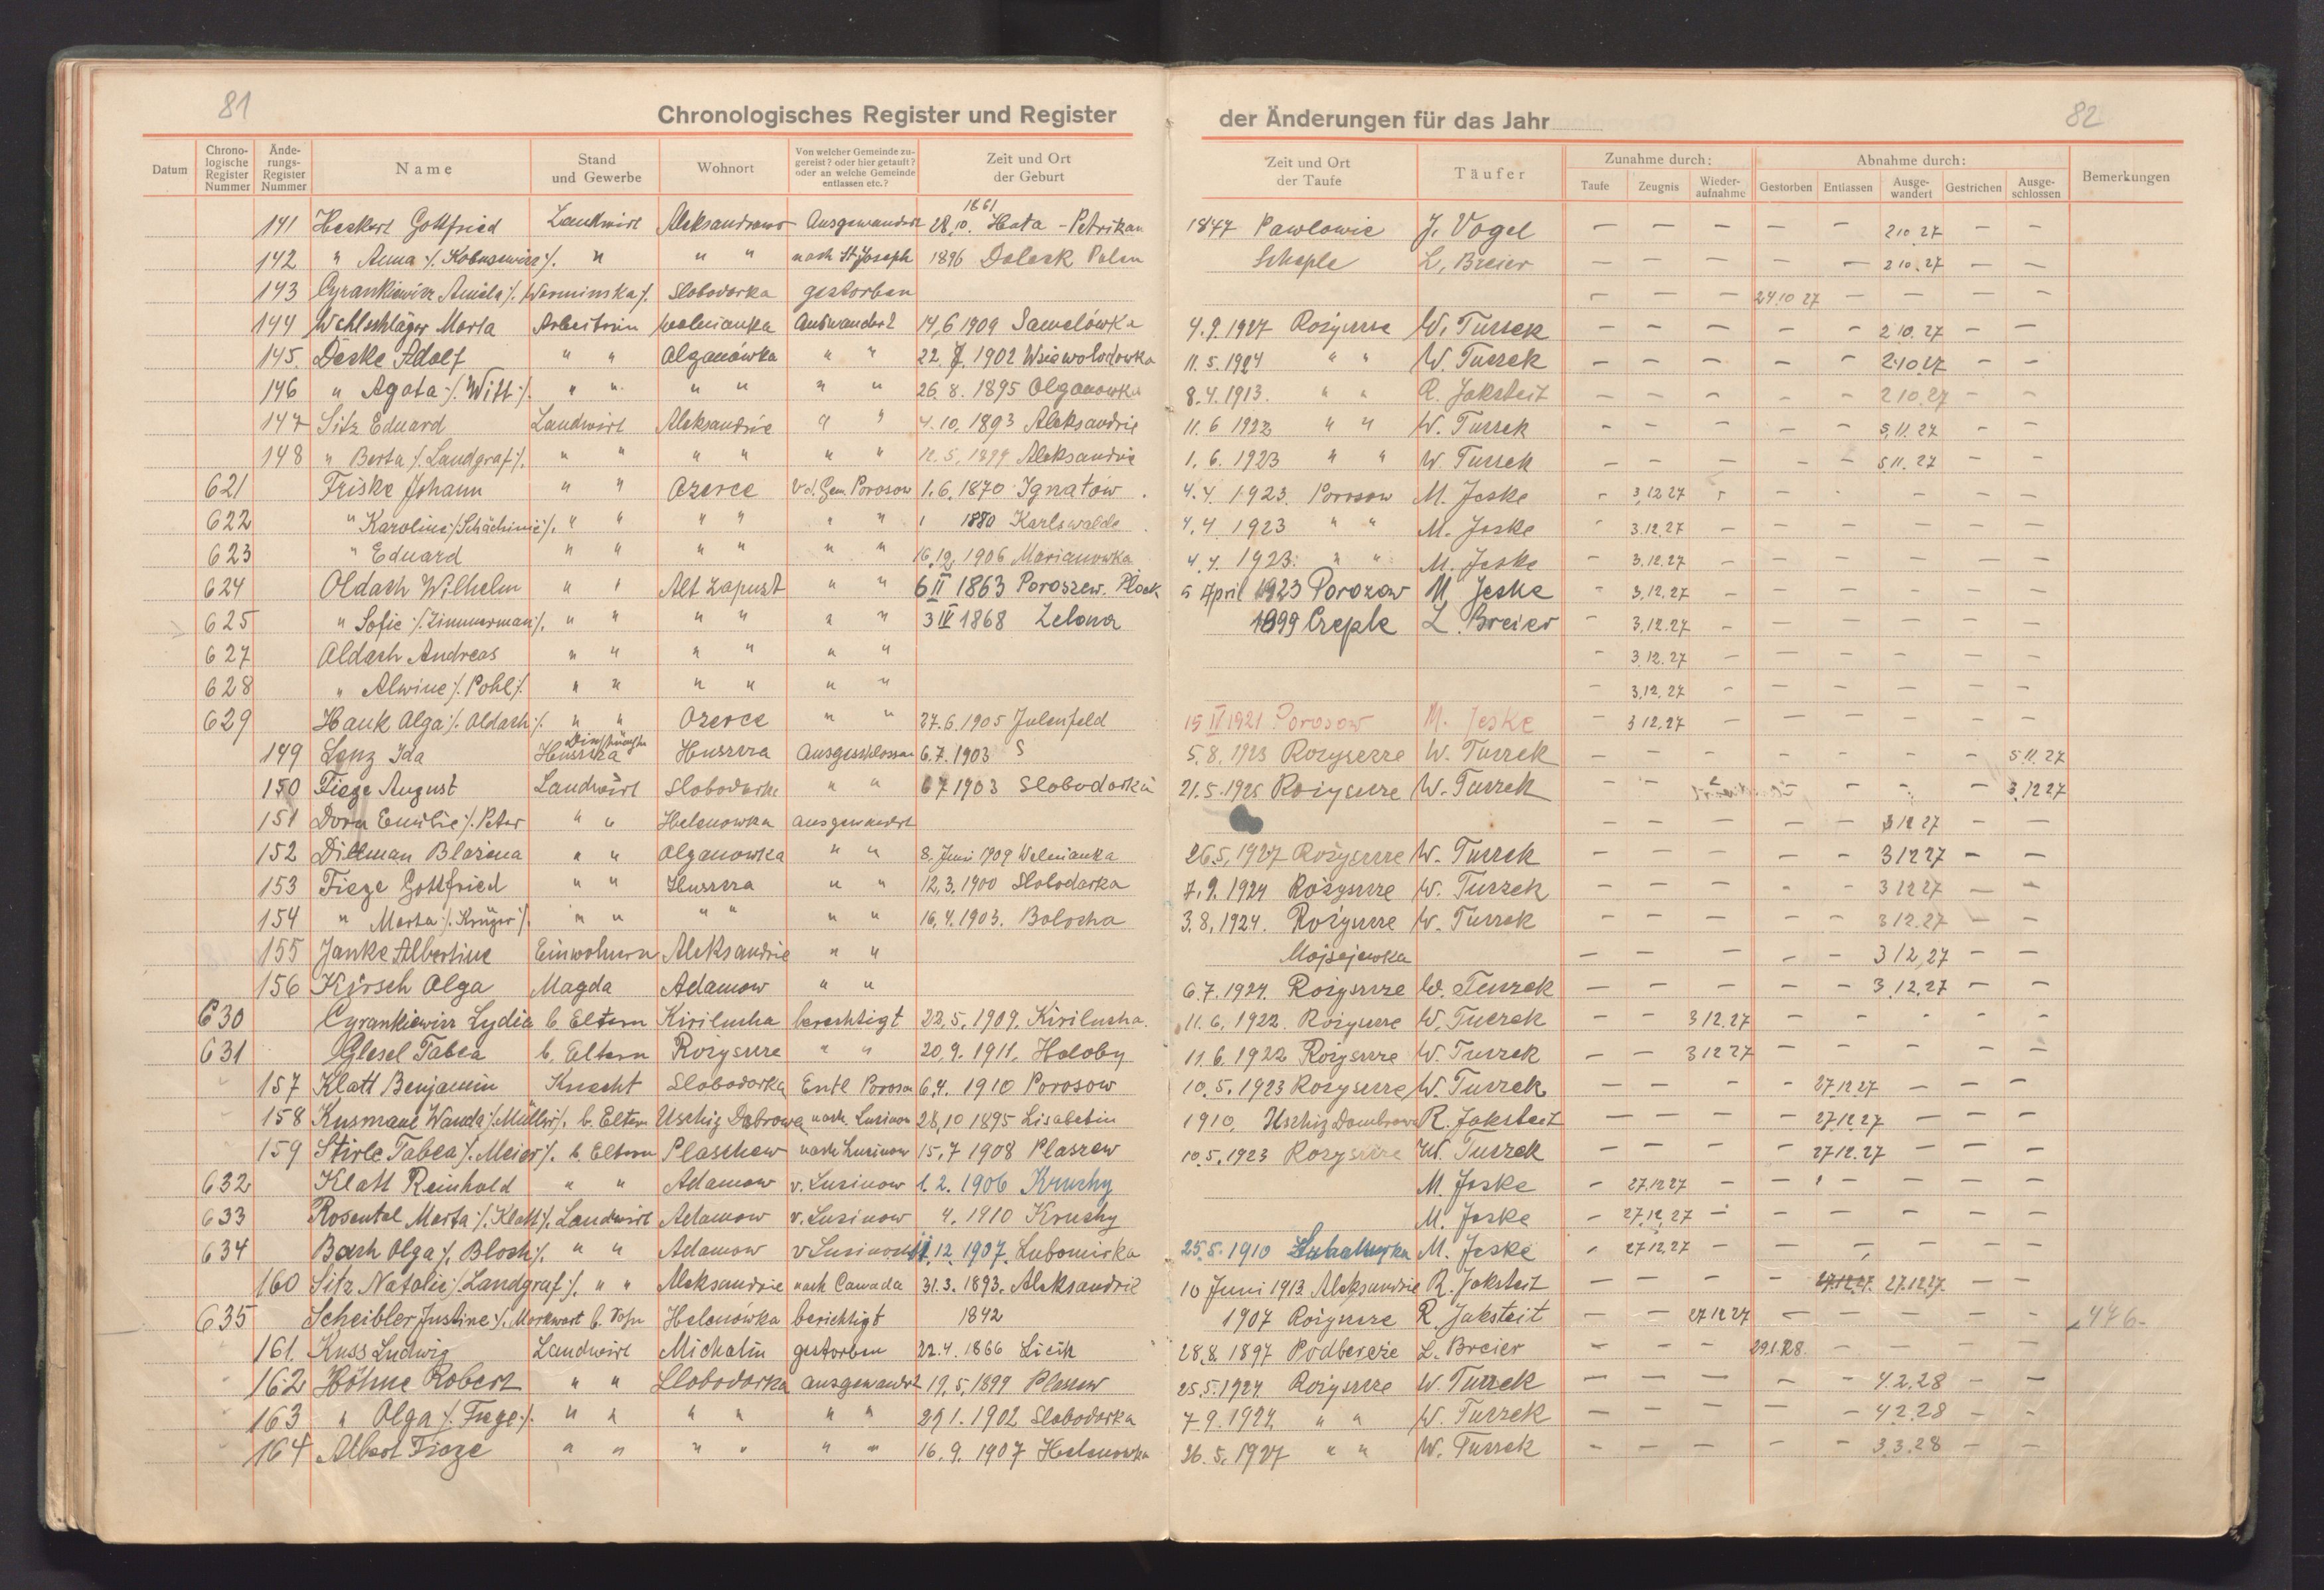 81
82
Chronologisches Register und Register der Änderungen für das Jahr
Datum | Chrono-logische Register Nummer | Ände-rungs-Register Nummer | Name | Stand und Gewerbe | Wohnort | Von welcher Gemeinde zu-gereist? oder hier getauft? oder an welche Gemeinde entlassen etc.? | Zeit und Ort der Geburt | Zeit und Ort der Taufe | Täufer | Zunahme durch: Taufe | Zeugnis | Wieder-aufnahme | Abnahme durch: Gestorben | Entlassen | Ausge-wandert | Gestrichen | Ausge-schlossen | Bemerkungen
141 Heskert Gottfried Landwirt Aleksandrowo Ausgewandert 28.10. 1861 Huta - Petrikau 1847 Pawlowie J. Vogel — — — — — 2 10 27 — —
142 " Anna /. Kobusewicz /. " " " nach St Joseph 1896 Polen Scheple L. Breier — — — — — 2 10. 27 — —
143 Cyrankiewicz Amila /. Werminska /. Slobodarka gestorben — — — 24 10 27 — — — —
144 Wohlschläger Marta Arbeiterin Wolnianka Auswandert 14,6 1909 Samelówka 4.9.1927 Rożyszcze W. Tuczek — — — — — 2 10. 27 — —
145. Deske Adolf " " Olganówka " " 22. 7. 1902 Wsiewolodowka 11. 5. 1924 " " W. Tuczek — — — — — 2 10 27 — —
146 " Agata /. Witt /. " " " " " " 26. 8. 1895 Olganowka 8.4.1913. " " R. Jaksteit — — — — — 2 10. 27 — —
147 Sitz Eduard Landwirt Aleksandrie " " 4. 10. 1893 Aleksandrie 11. 6 1922 " " W. Tuczek — — — — — 5. 11. 27 — —
148 " Berta /. Landgraf /. " " " " " " 12. 5. 1899 Aleksandrie 1. 6. 1923 " " W. Tuczek — — — — — 5. 11. 27 — —
621 Friske Johann " " Ozerce v d. Gem. Porosow 1. 6. 1870 Ignatow 4. 4. 1923. Porosow M. Jeske — 3,12 27 — — — — — —
622 " Karoline /. Schächinie /. " " " " " " 1880 Karlswalde 4. 4 1923 " " M. Jeske — 3.12.27 — — — — — —
623 " Eduard " " " " " " 16,12. 1906 Marianowka 4. 4. 1923. " " M. Jeske — 3.12.27 — — — — — —
624 Oldach Wilhelm " " Alt Zapust " " 6 II 1863 Poroszew. Plock 5 April 1923 Porozow M. Jeske — 3,12.27 — — — — — —
625 " Sofie /. Zimmerman /. " " " " " " 3 IV 1868 Zelona 1899 Czeple L. Breier — 3,12.27 — — — — — —
627 Aldach Andreas " " " " " " — 3.12.27 — — — — — —
628 " Alwine /. Pohl /. " " " " " " — 3,12.27 — — — — — —
629 Hauk Olga /. Aldach /. " " Ozerce " " 27.6.1905 Julenfeld 15 IV 1921 Porosow M. Jeske — 3 12.27 — — — — — —
149 Lenz Ida Huszcza Huszcza Ausgeschlossen 6.7.1903 S 5.8.1923 Rozyszcze W. Tuczek — — — — — — — 5 11. 27
150 Fiege August Landwirt Slobodarka " " 6 7 1903 Slobodarka 21.5.1925 Rozyszcze W. Tuczek — — — — — — 3,12 27
151 Dorn Emilie /. Peter " " Helenowka Ausgewandert — — — — — 3 12 27 — —
152 Dillman Blazina " " Olganowka " " 8. Juni 1909 Wolnianka 26.5.1927 Rożyszcze W. Tuczek — — — — — 3 12 27 — —
153 Fiege Gottfried " " Huszcza " " 12,3.1900 Slobodarka 7.9.1924 Rożyszcze W. Tuczek — — — — — 3 12 27 — —
154 " Marta /. Krüger /. " " " " " " 16,4.1903. Bolocha 3.8.1924. Rożyszcze W. Tuczek — — — — — 3 12.27 — —
155 Janke Albertine Einwohnern Aleksandrie " " Mojsejewka — — — — — 3 12,27 — —
156 Kirsch Olga Magda Adamow " " 6.7.1924. Rożyszcze W. Tuczek — — — — — 3.12.27 — —
630 Cyrankiewicz Lydia b. Eltern Kirilucha berechtigt 22.5.1909. Kirilucha. 11.6.1922. Rożyszcze W. Tuczek — — 3 12.27 — — — — —
631 Glesel Tabea b. Eltern Rożyszcze " " 20,9.1911. Holoby 11.6.1922 Rożyszcze W. Tuczek — — 3 12 27 — — — — —
157 Klatt Benjamin Knecht Slobodarka Entl Porosow 6,4. 1910 Porosow 10.5.1923 Rozyszcze W. Tuczek — — — — 27 12 27 — — —
158 Kusmaul Wanda /. Müller /. b. Eltern Uschiz Dabrowa nach. Lucinow 28,10 1895 Lisabetin 1910, Uschiz Dombrowa R. Jaksteit — — — — 27.12.27 — — —
159 Stirle Tabea /. Meier /. b. Eltern Plaschew nach Lucinow 15,7 1908 Plaszew 10.5.1923 Rozyszcze W. Tuczek — — — — 27 12.27 — — —
632 Klatt Reinhold " " Adamow v. Lucinow 1. 2. 1906 Kruchy M. Jeske — 27.12 27 — — — — — —
633 Rosental Marta /. Klatt /. Landwirt Adamow v. Lucinow 4. 1910 Kruchy M. Jeske — 27.12.27 — — — — — —
634 Bach Olga /. Bloch /. " " Adamow v Lucinow 11. 12. 1907. Lubomirka 25.5.1910 M. Jeske — 27.12.27 — — — — — —
160 Sitz Natalie /. Landgraf /. " " Aleksandrie nach Canada 31.3.1893. Aleksandrie 10 Juni 1913. Aleksandrie R. Jaksteit — — — — 27.12.27. 27.12 27. — —
635 Scheibler Justine /. Markwart b. Sohn Helenówka berichtigt 1842 1907 Rożyszcze R. Jaksteit — — 27 12 27 — — — — — 476-
161. Kuss Ludwig Landwirt Michalin gestorben 22.4. 1866 Licik 28.8. 1897 Podbereżie L. Breier — — — 29.1.28. — — — —
162 Höhne Robert " " Slobodarka ausgewandt 19.5.1899 Plaszew 25.5.1924. Rożyszcze W. Tuczek — — — — — 4.2.28 — —
163 " Olga /. Fiege /. " " " " " " 29 1. 1902 Slobodarka 7 9. 1924. " " W. Tuczek — — — — — 4 2.28 — —
164 Albert Fiege " " " " " " 16. 9. 1907 Helenowka 26. 5. 1927 " " W. Tuczek — — — — — 3.3.28 — —